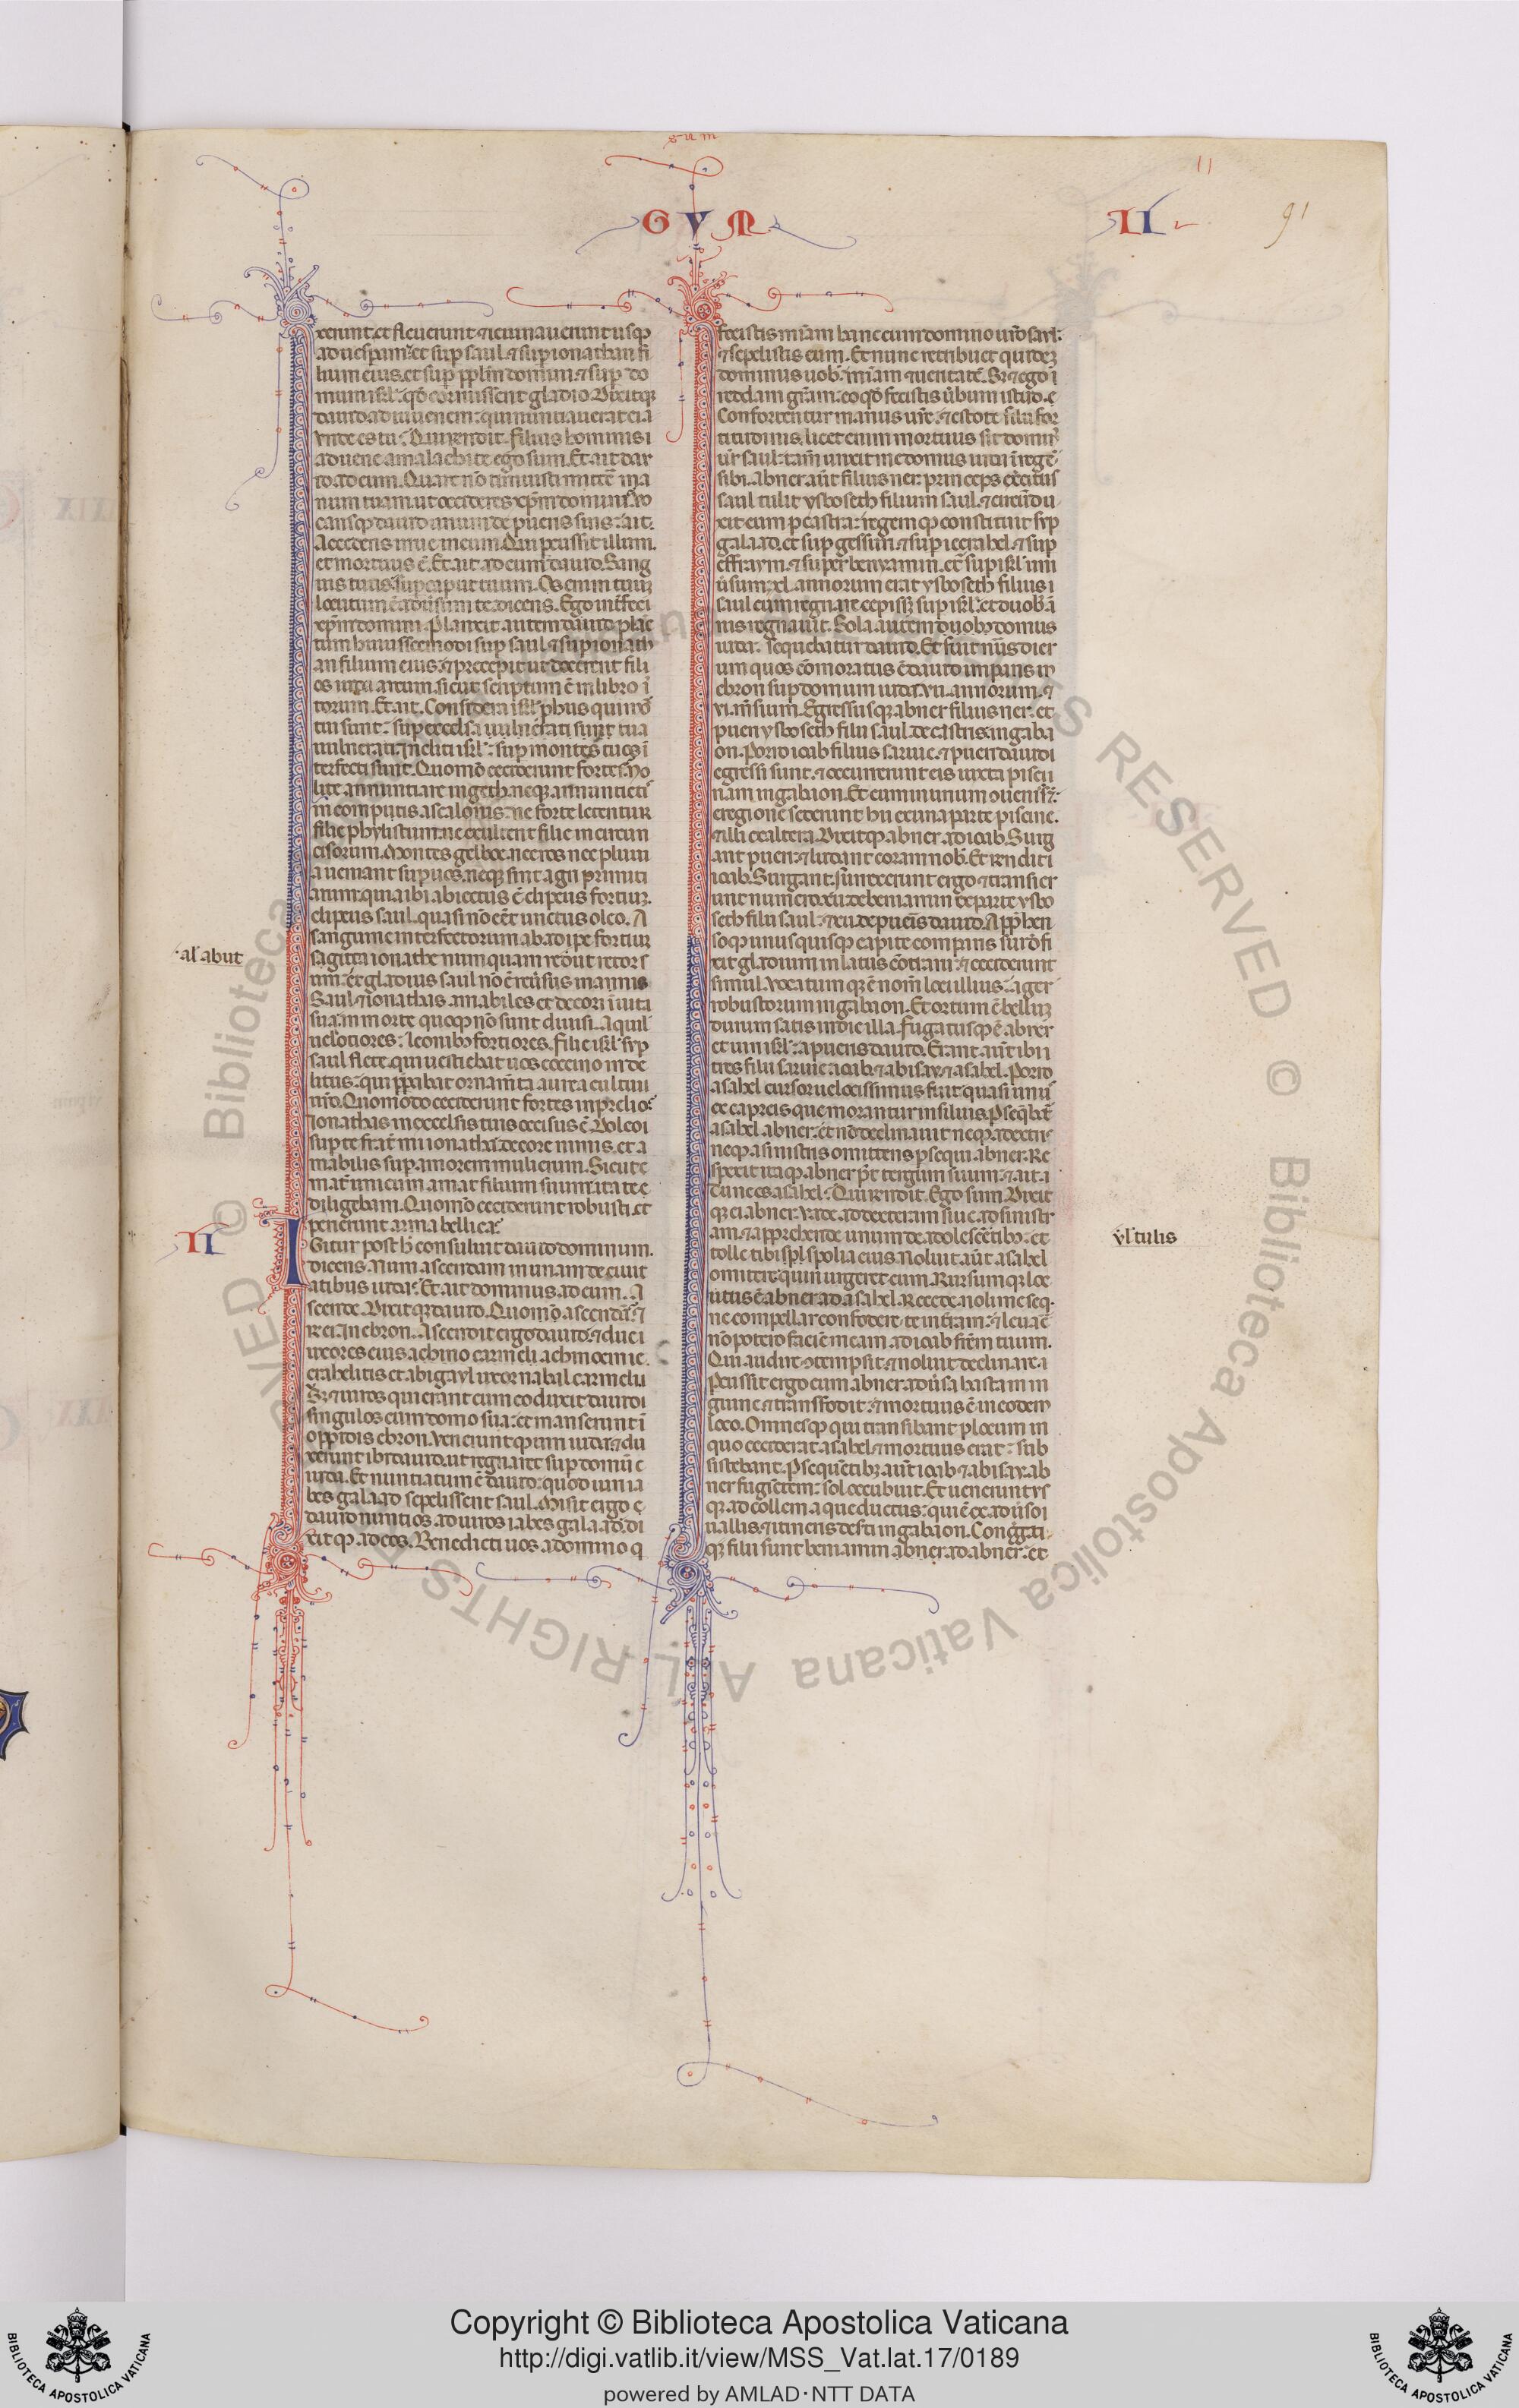 gum
GUM
II
91
xerunt. et fleuerunt ⁊ ieiunauerunt usq̨
ad uesꝑam. et suꝑ saul. ⁊ suꝑ ionathan fi
lium eius. et suꝑ pp̄lm domini. ⁊ suꝑ do
mum isrl̄. qd̄ corruissent gladio. Dixitqȝ
dauid ad iuuenem: qui nuntiauerat ei.
Vnde es tu? Qui rendit. Filius hominis
aduene amalechite ego sum. Et ait dau
id ad eum. Quare nō timuisti mittē ma
num tuam. ut occideres xp̄m domini? Uo
cansq̨ dauid unum de pueris suis: ait.
Accedens irrue in eum. Qui percussit illum.
et mortuus ē. Et ait ad eum dauid. Sang
uis tuus suꝑ caput tuum. Os enim tuū
locutum ē aduersum te dicens. Ego int̄feci
xp̄m domini. Planxit autem dauid planc
tum huiuscemodi suꝑ saul. ⁊ suꝑ ionath
an filium eius. ⁊ precepit ut docerent fili
os iuda arcum. sicut scriptum ē in libro i
storum. Et ait. Considera isrl̄
tui sunt: suꝑ excelsa uulnerati sunt tua
uulnerati. Incliti isrl̄: suꝑ montes tuos i
terfecti sunt. Quomō ceciderunt fortes? No
lite annuntiare in geth. neq̨ annuncietis
in compitis ascalonis: ne forte letentur
filie phylistiim. ne exultent filie in circun
cisorum. Montes gelboe. nec ros nec pluui
a ueniant suꝑ uos. neq̨ sint agri primiti
arum: quia ibi abiectus ē clipeus fortiuȝ.
clipeus saul. quasi nō eēt unctus oleo. A
sanguine interfectorum ab adipe fortiuȝ
sagitta ionathe numquam rediit retors
um: et gladius saul nō ē reūsus inanis
Saul ⁊ ionathas amabiles et decori in uita
sua: in morte quoq̨ nō sunt diuisi. Aquil
uelotiores: leonibȝ fortiores. Filie isrl̄ suꝑ
saul flete. qui uestiebat uos coccino in de
litiis: qui p̄pabat ornam̄ta aurea cultui
ur̄o. Quomodo ceciderunt fortes in prelio?
Ionathas in excelsis tuis occisus ē. Doleo
suꝑ te frat̄ mi ionatha. decore nimis. et a
mabilis suꝑ amorem mulierum. Sicut
mat̄ unicum amat filium suum: ita te
diligebam. Quomō ceciderunt robusti. et
perierunt arma bellica?
al̄ abiit
II
IGitur post h̄ consuluit dauid dominum.
dicens. Num ascendam in unam de ciuit
atibus iuda? Et ait dominus ad eum. A
scende. Dixitqȝ dauid. Quomō ascendā? ⁊
r̄ ei. In ebron. Ascendit ergo dauid. ⁊ due
uxores eius achinoem
ezrahelitis et abigayl uxor nabal carmeli
Sȝ ⁊ uiros qui erant cum eo duxit dauid
singulos cum domo sua: et manserunt i
oppidis ebron. Veneruntq̨ uiri iuda. ⁊ du
xerunt ibi dauid. ut regnaret suꝑ domū
iuda. Et nuntiatum ē dauid: quod uiri ia
bes galaad sepelissent saul. Misit ergo
dauid nuntios ad uiros iabes galaad. di
xitq̨ ad eos. Benedicti uos a domino q
fecistis mīam hanc cum domino ur̄o saul:
⁊ sepelistis eum. Et nunc retribuet quideȝ
dominus uob̄ mīam ⁊ ueritatē. Sȝ ⁊ ego
reddam grām: eo qd̄ fecistis ūbum istud.
Confortentur manus ur̄e. ⁊ estote filii for
titudinis. licet enim mortuus sit domin
ur̄ saul: tam̄ unxit me domus iuda i regē
sibi. Abner aūt filius ner: princeps exercitus
saul tulit ysboseth filium saul. ⁊ circūdu
xit eum ꝑ castra: regemq̨ constituit suꝑ
galaad. et suꝑ gessuri. ⁊ suꝑ iezrahel. ⁊ suꝑ
effraym. ⁊ super beniamin. et suꝑ isrl̄ uni
ūsum. xl. annorum erat ysboseth filius
saul cum regnare cepissȝ suꝑ isrl̄: et duob̄ a
nis regnauit. Sola autem duobȝ domus
iuda: sequebatur dauid. Et fuit nūs dier
um quos cōmoratus ē dauid imꝑans in
ebron suꝑ domum iuda: vii. annorum. ⁊
vi. m̄sium. Egressusqȝ abner filius ner: et
pueri ysboseth filii saul. de castris in gaba
on. Porro ioab filius saruie. ⁊ pueri dauid
egressi sunt. ⁊ occurrerunt eis iuxta pisci
nam in gabaon. Et cum in unum
eregione sederunt hii ex una parte piscine.
⁊ illi ex altera. Dixitq̨ abner. ad ioab. Surg
ant pueri: ⁊ ludant coram nob̄. Et rendit
ioab. Surgant. Surrexerunt ergo ⁊ transier
unt numero. xii. de beniamin de parte ysbo
seth filii saul: ⁊ xii. de pueris dauid. Appr̄hen
soq̨ unusquisq̨ capite comparis sui: defi
xit gladium in latus cōtrarii: ⁊ ceciderunt
simul. Vocatumqȝ ē nom̄ loci illius: ager
robustorum in gabaon. Et ortum ē belluȝ
durum satis in die illa. Fugatusq̨ ē abner
et uiri isrl̄: a pueris dauid. Erant aūt ibi
tres filii saruie: ioab. ⁊ abisay. ⁊ asahel. Porro
asahel cursor uelocissimus fuit: quasi unus
ex capreis que morantur in siluis. Ꝑseq̄batr̄
asahel abner: et nō declinauit neq̨ ad dextr̄
neq̨ a sinistris omittens ꝑsequi abner. Re
spexit itaq̨ abner p̄t tergum suum. ⁊ ait.
Tune es asahel? Qui rendit. Ego sum. Dixit
qȝ ei abner. Vade. ad dexteram siue ad sinistr
am. ⁊ apprehende unum de adolescētibȝ: et
tolle tibi spolia eius. Noluit aūt asahel
omitere: quin urgeret eum. Rursumqȝ loc
utus ē abner ad asahel. Recede. noli me seq.
ne compellar confodere te in terram: ⁊ leuare
nō potero faciē meam ad ioab frēm tuum.
Qui audire ɔtempsit. ⁊ noluit declinare.
Percussit ergo eum abner aduersa hasta in in
guine ⁊ transfodit: ⁊ mortuus ē in eodem
loco. Omnesq̨ qui transibant ꝑ locum in
quo ceciderat asahel ⁊ mortuus erat: sub
sistebant. Ꝑsequētibȝ aūt ioab ⁊ abisay. ab
ner fugientem: sol occubuit. Et uenerunt us
qȝ ad collem aque ductus: qui ē ex aduerso
uallis. ⁊ itineris deserti in gabaon. Congregati
qȝ filii sunt beniamin abner. ad abner: et
Copyright © Biblioteca Apostolica Vaticana
http://digi.vatlib.it/view/MSS_Vat.lat.17/0189
powered by AMLAD·NTT DATA
BIBLIOTECA APOSTOLICA VATICANA
BIBLIOTECA APOSTOLICA VATICANA